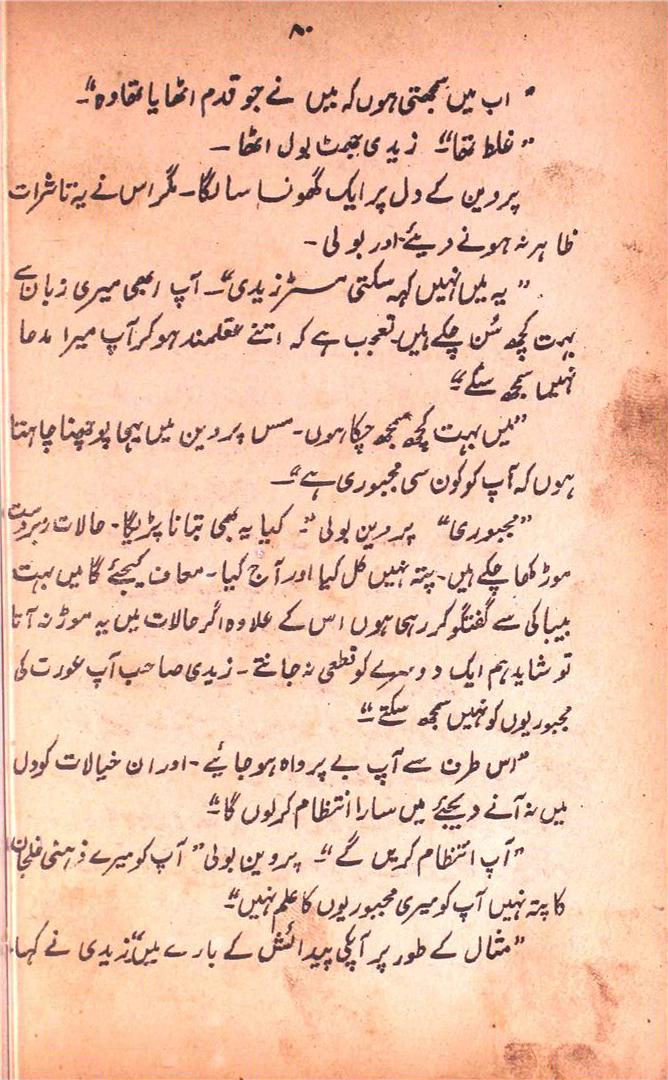 ۸۰
" اب میں سمجھتی ہوں کہ میں نے جو قدم اٹھایا تھا وہ"۔
" غلط تھا"۔ زیدی جھٹ بول اٹھا ۔
پروین کے دل پر ایک گھونسا سا لگا۔ مگر اس نے یہ تاثرات
ظاہر نہ ہونے دیئے اور بولی ۔
" یہ میں نہیں کہہ سکتی مسٹر زیدی"۔ آپ ابھی میری زبان سے
بہت کچھ سُن چکے ہیں۔ تعجب ہے کہ اتنے عقلمند ہوکر آپ میرا مدعا
نہیں سمجھ سکے"
"میں بہت کچھ سمجھ چکا ہوں۔ مس پروین میں پوچھنا چاہتا
ہوں کہ آپ کو کون سی مجبوری ہے"۔
"مجبوری" پروین بولی"۔ کیا یہ بھی بتانا پڑیگا۔ حالات زبردست
موڑ کھا چکے ہیں۔ پتہ نہیں کل کیا اور آج کیا۔ معاف کیجئے گا میں بہت
بیباکی سے گفتگو کر رہی ہوں اس کے علاوہ اگر حالات میں یہ موڑ نہ آتا
تو شاید ہم ایک دوسرے کو قطعی نہ جانتے ۔ زیدی صاحب آپ عورت کی
مجبوریوں کو نہیں سمجھ سکتے"
"اس طرف سے آپ بے پرواہ ہو جائیے ۔ اور ان خیالات کو دل
میں نہ آنے دیجئے میں سارا انتظام کر لوں گا"
"آپ انتظام کریں گے"۔ پروین بولی" آپ کو میرے ذہنی خلجان
کا پتہ نہیں آپ کو میری مجبوریوں کا علم نہیں"
"مثال کے طور پر آپکی پیدائش کے بارے میں" زیدی نے کہا۔